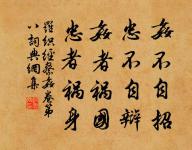 姦不自招
忠不自辯
姦者禍國
忠者禍身
羅織經察姦卷第
八詞典網集